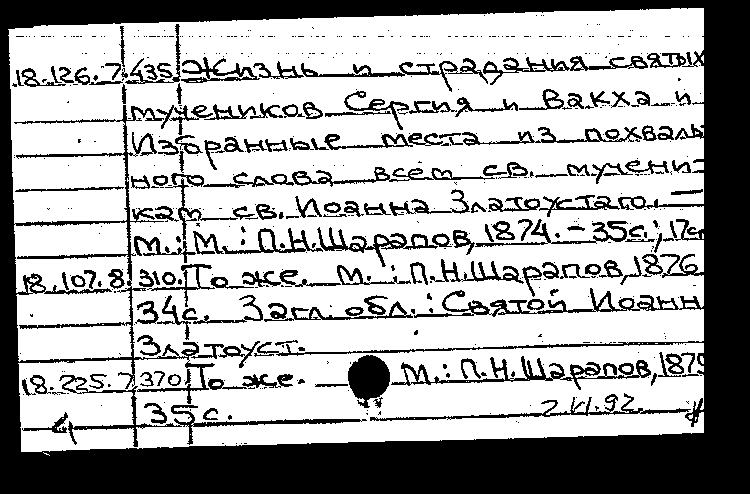 18.126.7.435. Жизнь и страдания святых
мучеников Сергия и Вакха и
Избранные места из похваль
ного слова всем св. мучени-
кам св. Иоанна Златоустаго. —
М.: М.: П.Н.Шарапов, 1874. - 35с.; 17см
18.107.8.310. То же. М.: П.Н.Шарапов, 1876
34с. Загл. обл.: Святой Иоанн
Златоуст.
18.225.7.370. То же. М.: П.Н.Шарапов, 1879
35с.
4